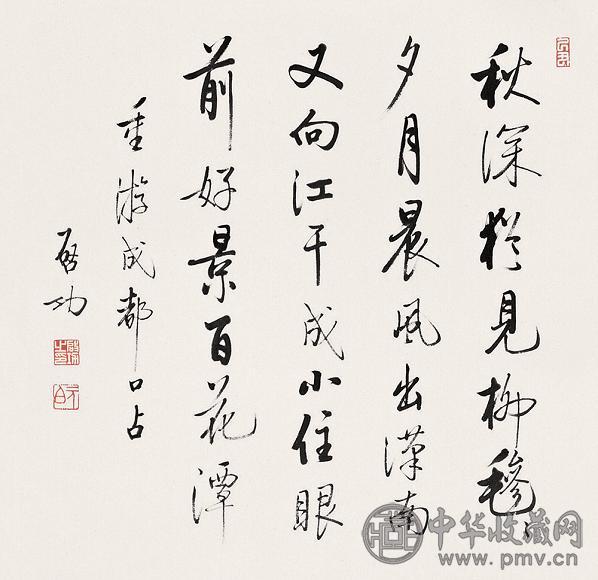 秋深猶見柳毿々
夕月晨風出漢南
又向江干成小住眼
前好景百花潭
重游成都口占
啟功
啟功之印
元白
中华收藏网
www.pmv.cn